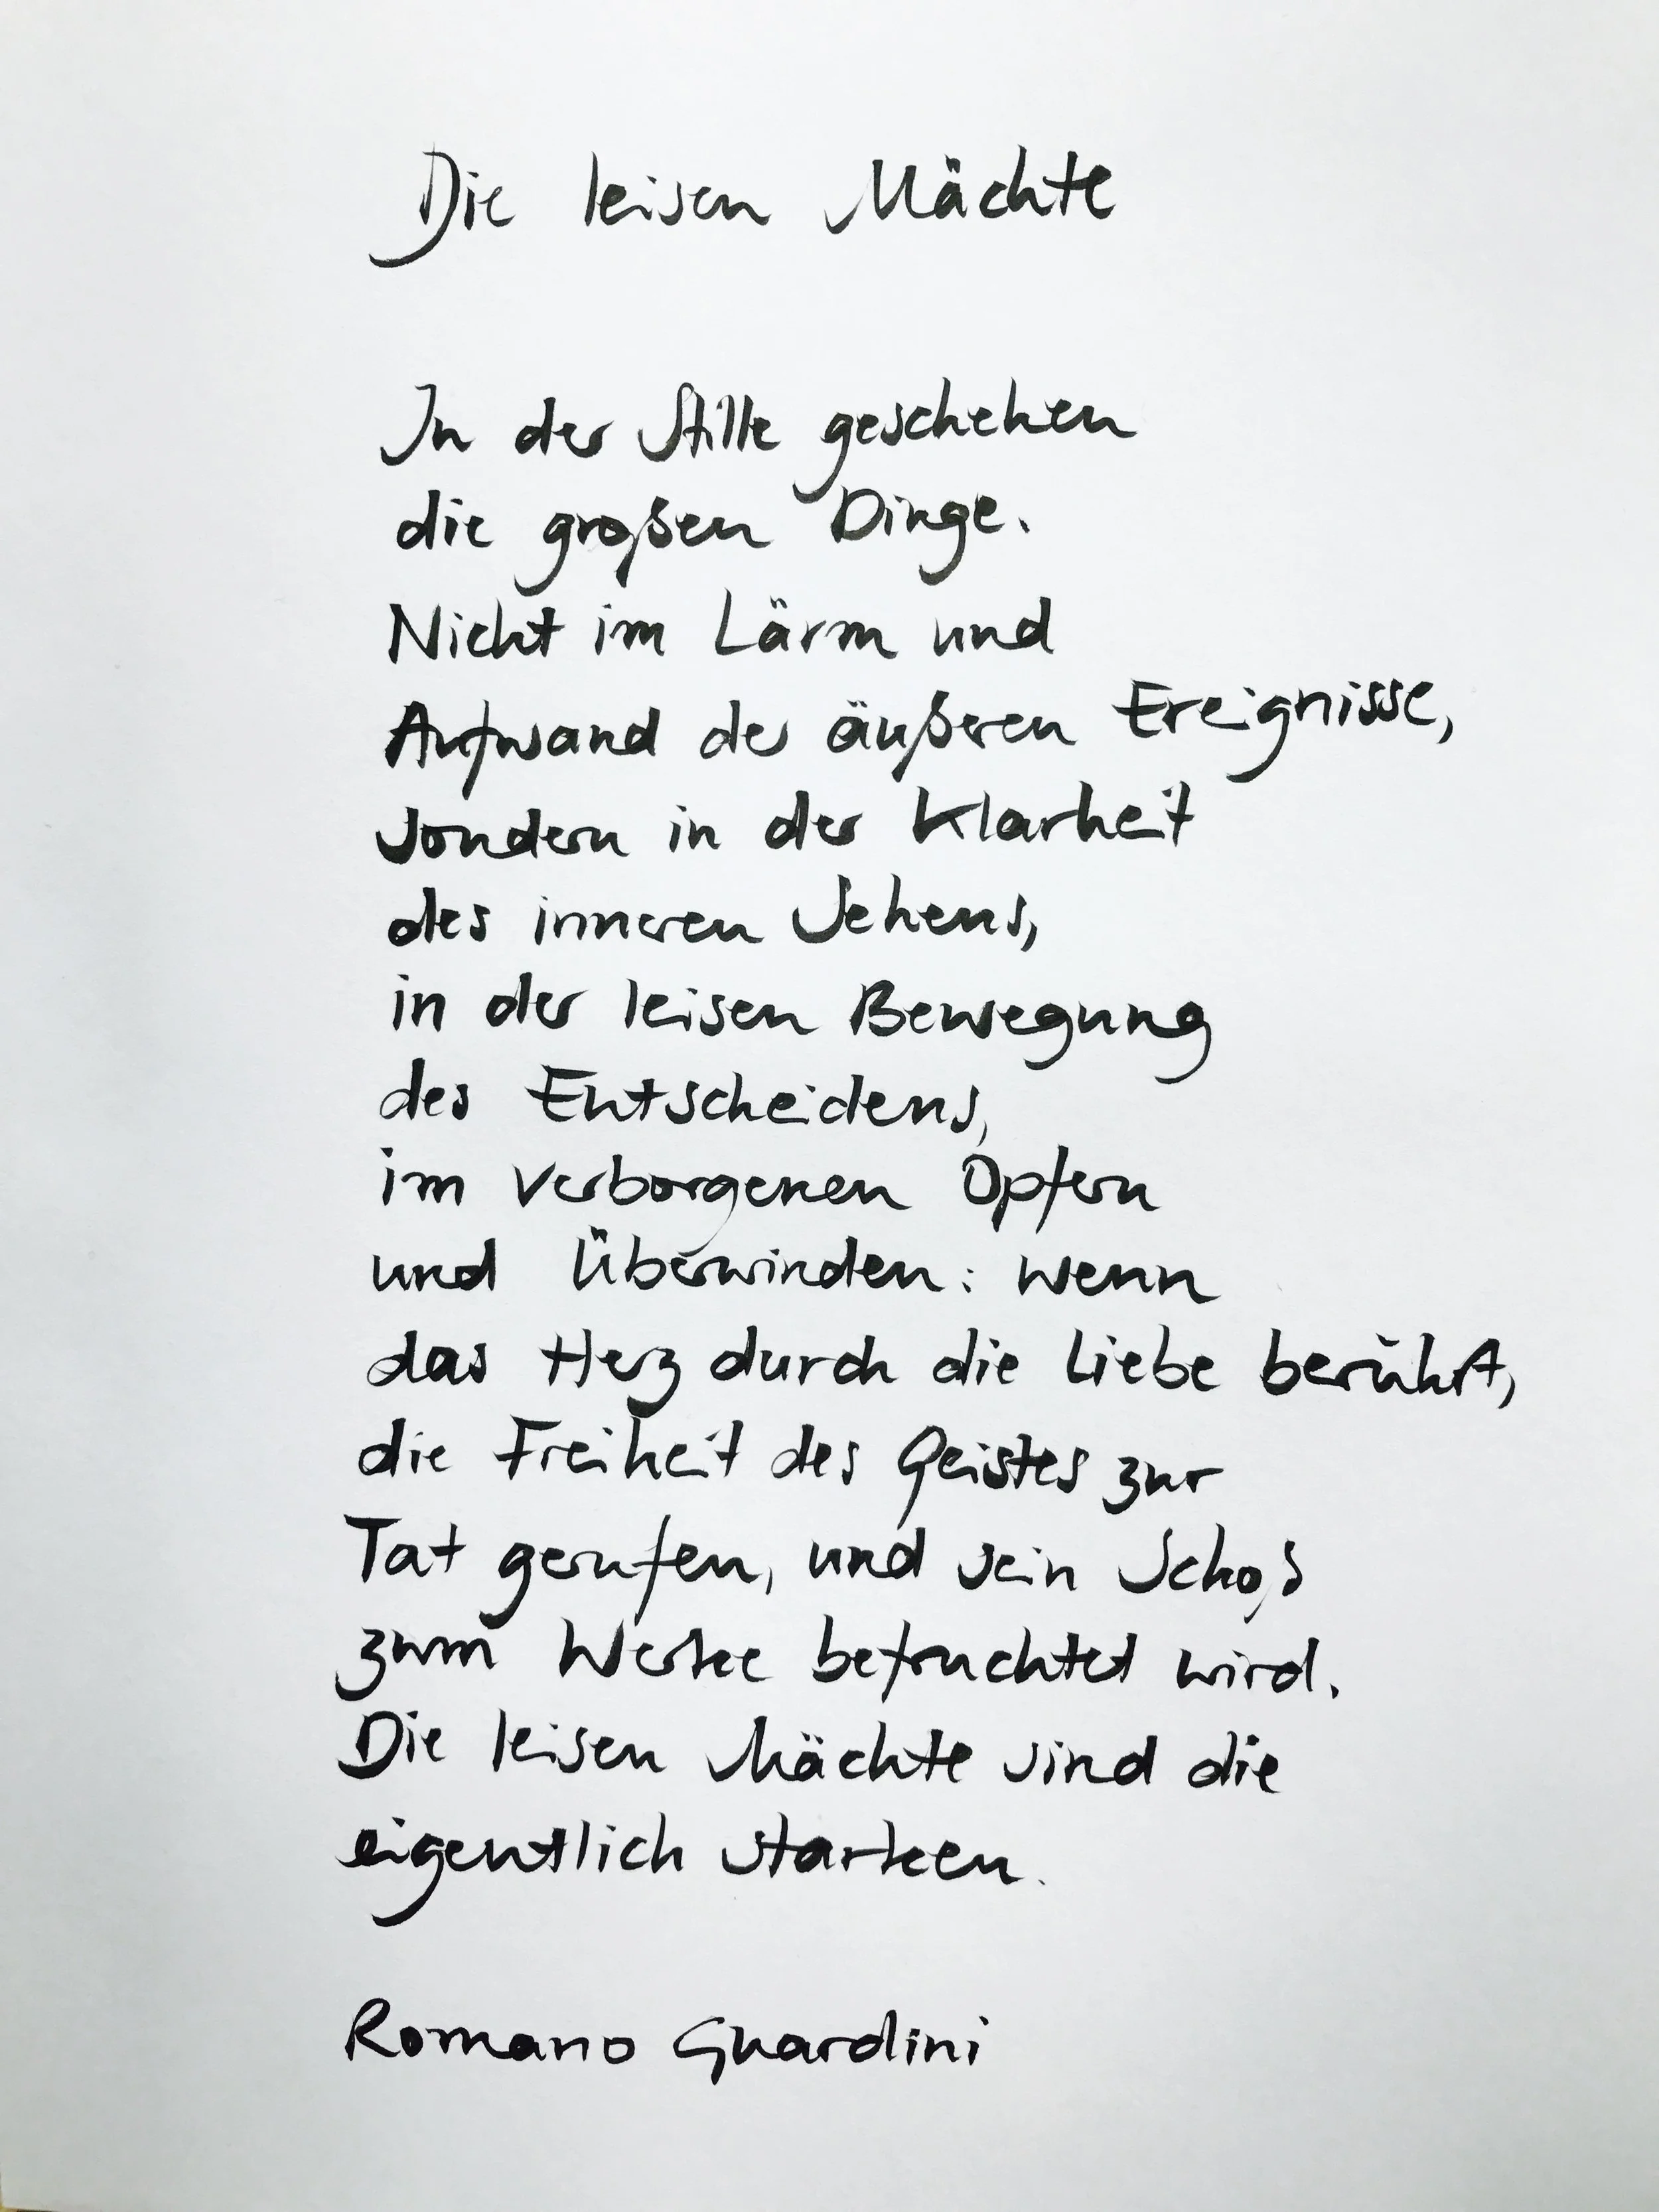 Die leisen Mächte
In der Stille geschehen
die großen Dinge.
Nicht im Lärm und
Aufwand der äußeren Ereignisse,
sondern in der Klarheit
des inneren Sehens,
in der leisen Bewegung
des Entscheidens,
im verborgenen Opfern
und Überwinden: wenn
das Herz durch die Liebe berührt,
die Freiheit des Geistes zur
Tat gerufen, und sein Schoß
zum Werke befruchtet wird.
Die leisen Mächte sind die
eigentlich starken.
Romano Guardini